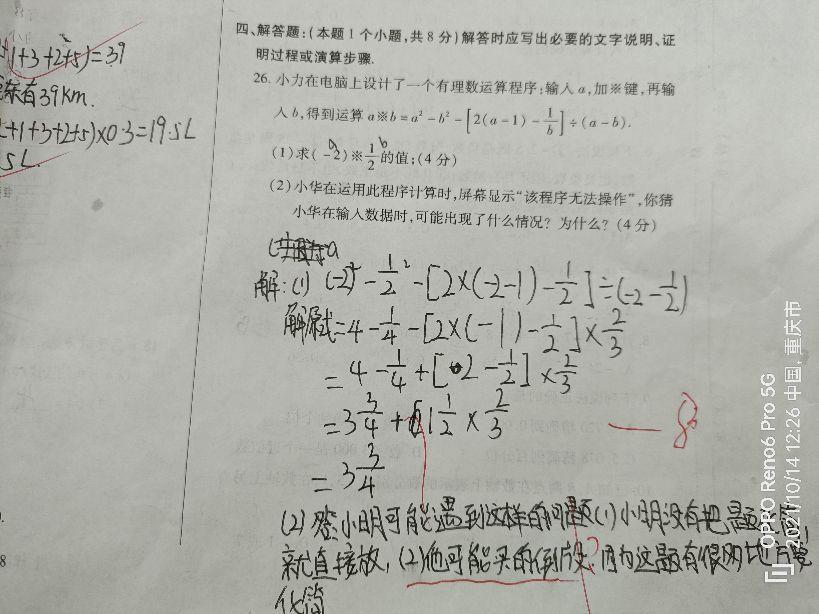 +(1+3+2+5)=39
东有39km.
+1+3+2+5)×0.3=19.5L
5L.
四、解答题:(本题1个小题,共8分)解答时应写出必要的文字说明、证
明过程或演算步骤.
26.小力在电脑上设计了一个有理数运算程序:输入a,加※键,再输
入b,得到运算a※b=a²-b²-[2(a-1)-1/b]÷(a-b).
a b
(1)求(-2)※1/2的值;(4分)
(2)小华在运用此程序计算时,屏幕显示“该程序无法操作”,你猜
小华在输入数据时,可能出现了什么情况?为什么?(4分)
解:(1) (-2)²-1/2²-[2×(-2-1)-1/2]÷(-2-1/2)
解原式=4-1/4-[2×(-1)-1/2]×2/3
=4-1/4+[2-1/2]×2/3
=3 3/4+[1 1/2×2/3
=3 3/4
—8
(2)答小明可能遇到这样的问题(1)小明没有把题
就直接放,(2)他可能买的 ? 因为这题有很多地方要
化简
8
OPPO Reno6 Pro 5G
2021/10/14 12:26 中国, 重庆市